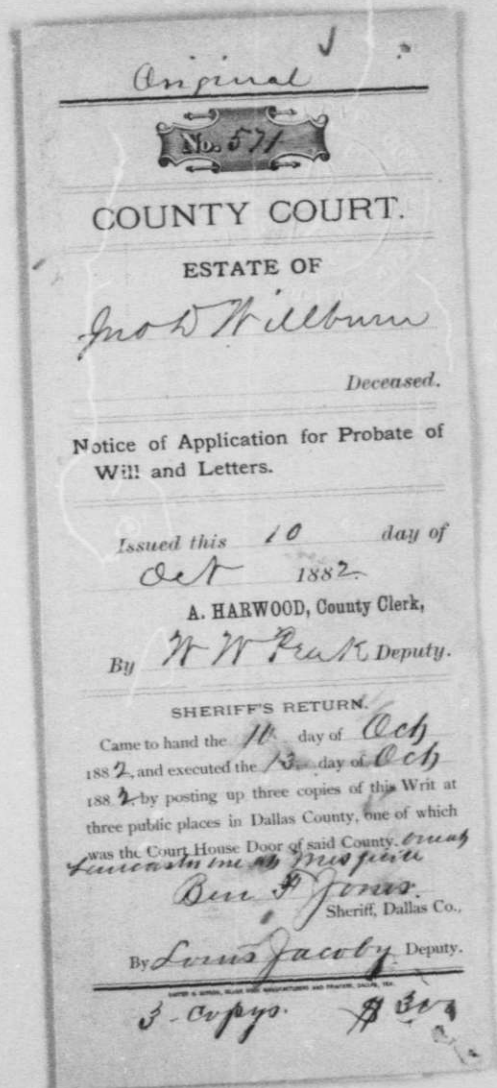 Original
No. 571
COUNTY COURT.
ESTATE OF
Jno D Willburn
Deceased.
Notice of Application for Probate of
Will and Letters.
Issued this 10 day of
Oct 1882.
A. HARWOOD, County Clerk,
By W W Peak Deputy.
SHERIFF'S RETURN.
Came to hand the 10 day of Oct
1882, and executed the 13 day of Oct
1882 by posting up three copies of this Writ at
three public places in Dallas County, one of which
was the Court House Door of said County. one at
Lancaster one at Mesquite
Ben F Jones.
Sheriff, Dallas Co.,
By Louis Jacoby Deputy.
3 - Copys. $ 300